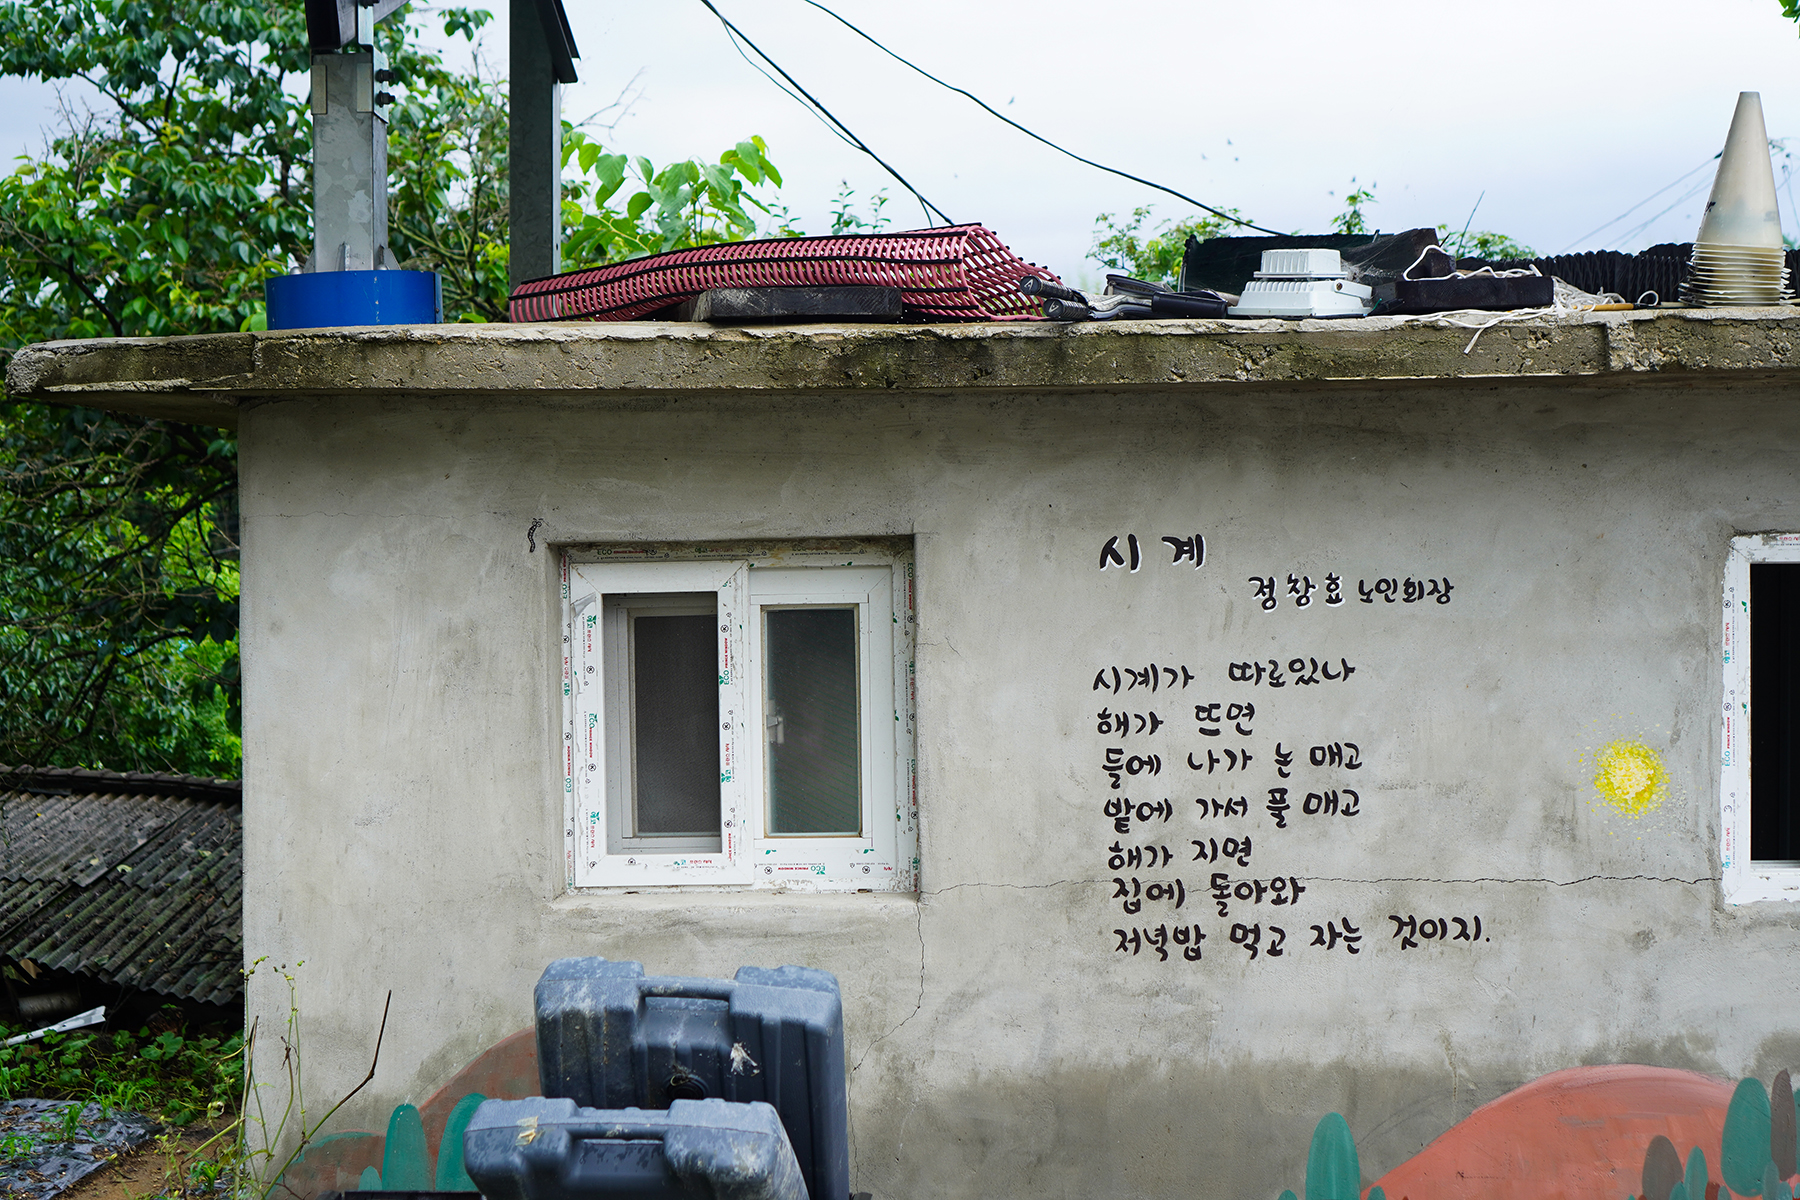 시계
정창효 노인회장
시계가 따로있나
해가 뜨면
들에 나가 논 매고
밭에 가서 풀 매고
해가 지면
집에 돌아와
저녁밥 먹고 자는 것이지.